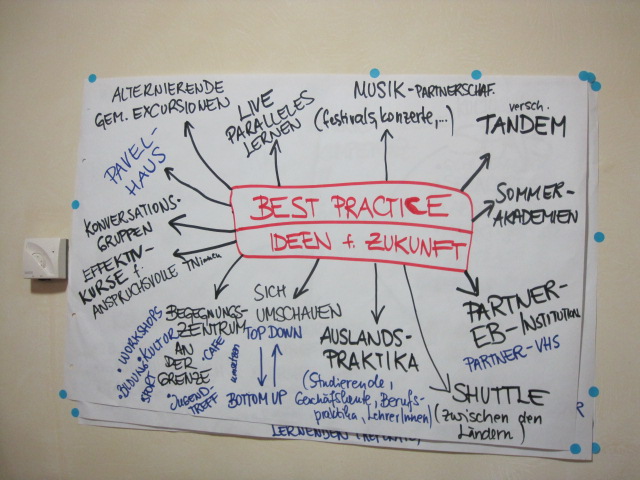 ALTERNIERENDE
GEM. EXCURSIONEN
LIVE
PARALLELES
LERNEN
MUSIK-PARTNERSCHAF.
(festivals, konzerte,...)
versch.
TANDEM
PAVEL-
HAUS
BEST PRACTICE
IDEEN f. ZUKUNFT
SOMMER-
AKADEMIEN
KONVERSATIONS-
GRUPPEN
EFFEKTIV-
KURSE f.
ANSPRUCHSVOLLE TNinnen
BEGEGNUNGS-
ZENTRUM
AN
DER
GRENZE
• WORKSHOPS
• BILDUNG • KULTUR
SPORT
• CAFE
• JUGEND-
TREFF
SICH
UMSCHAUEN
TOP DOWN
BOTTOM UP
AUSLANDS-
PRAKTIKA
(Studierende,
Geschäftsleute, Berufs-
praktika, LehrerInnen)
PARTNER-
EB-INSTITUTION
PARTNER-VHS
SHUTTLE
(zwischen den
Ländern)
LERNENDEN